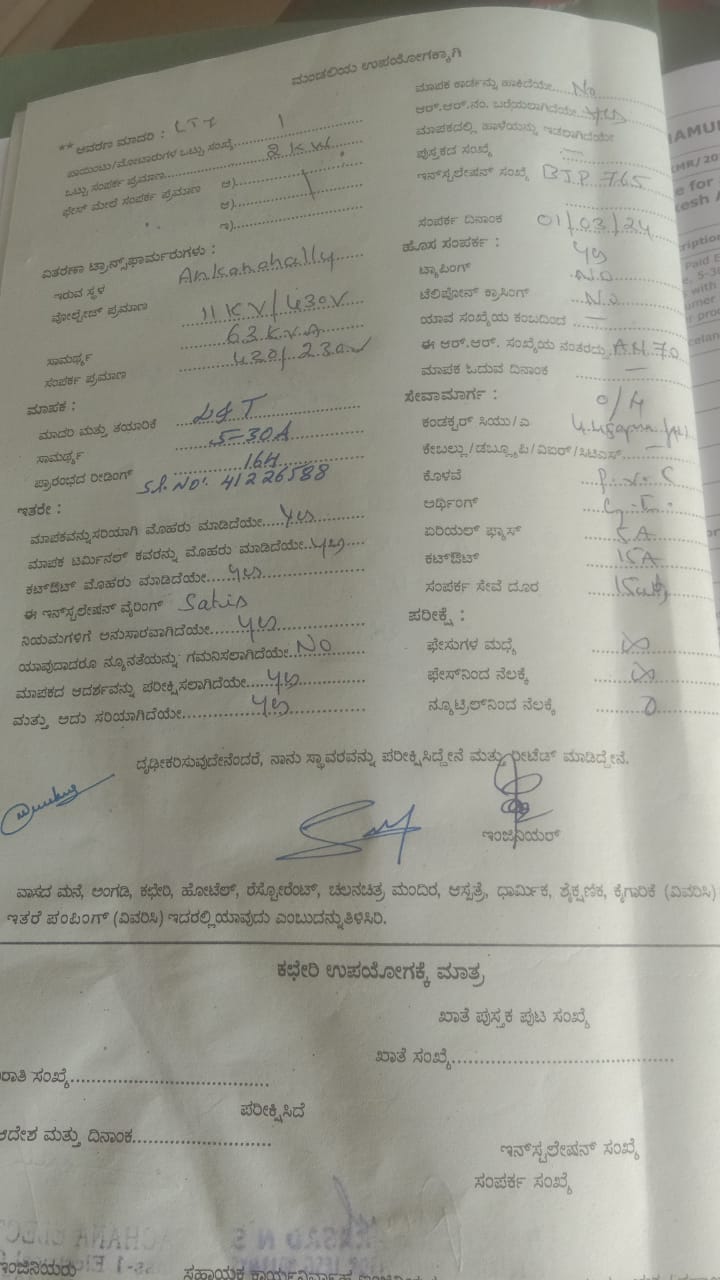 ಮಂಡಲಿಯ ಉಪಯೋಗಕ್ಕಾಗಿ
** ಆವರಣ ಮಾದರಿ : LT7
ಪಾಯಿಂಟು/ಮೋಟಾರುಗಳ ಒಟ್ಟು ಸಂಖ್ಯೆ.......... 1
ಒಟ್ಟು ಸಂಪರ್ಕ ಪ್ರಮಾಣ.......... 2 KW
ಫೇಸ್ ಮೇಲೆ ಸಂಪರ್ಕ ಪ್ರಮಾಣ
ವಿತರಣಾ ಟ್ರಾನ್ಸ್‌ಫಾರ್ಮರುಗಳು :
ಇರುವ ಸ್ಥಳ Ankanahally
ವೋಲ್ಟೇಜ್ ಪ್ರಮಾಣ 11 KV/430V
ಸಾಮರ್ಥ್ಯ 63 KVA
ಸಂಪರ್ಕ ಪ್ರಮಾಣ 430/230V
ಮಾಪಕ :
ಮಾದರಿ ಮತ್ತು ತಯಾರಿಕೆ L&T
ಸಾಮರ್ಥ್ಯ 5-30A
ಪ್ರಾರಂಭದ ರೀಡಿಂಗ್ 16H
Sl. No: 41226588
ಇತರೇ :
ಮಾಪಕವನ್ನು ಸರಿಯಾಗಿ ಮೊಹರು ಮಾಡಿದೆಯೇ.... Yes
ಮಾಪಕ ಟರ್ಮಿನಲ್ ಕವರನ್ನು ಮೊಹರು ಮಾಡಿದೆಯೇ.. Yes
ಕಟ್‌ಔಟ್ ಮೊಹರು ಮಾಡಿದೆಯೇ.... Yes
ಈ ಇನ್‌ಸ್ಟಲೇಷನ್ ವೈರಿಂಗ್ Satis
ನಿಯಮಗಳಿಗೆ ಅನುಸಾರವಾಗಿದೆಯೇ.... Yes
ಯಾವುದಾದರೂ ನ್ಯೂನತೆಯನ್ನು ಗಮನಿಸಲಾಗಿದೆಯೇ.. No
ಮಾಪಕದ ಆದರ್ಶವನ್ನು ಪರೀಕ್ಷಿಸಲಾಗಿದೆಯೇ.... Yes
ಮತ್ತು ಅದು ಸರಿಯಾಗಿದೆಯೇ.......... Yes
ಮಾಪಕ ಕಾರ್ಡನ್ನು ಹಾಕಿದೆಯೇ.... No
ಆರ್.ಆರ್.ನಂ. ಬರೆಯಲಾಗಿದೆಯೇ.... Yes
ಮಾಪಕದಲ್ಲಿ ಹಾಳೆಯನ್ನು ಇಡಲಾಗಿದೆಯೇ
ಪುಸ್ತಕದ ಸಂಖ್ಯೆ —
ಇನ್‌ಸ್ಟಲೇಷನ್ ಸಂಖ್ಯೆ BJP 765
ಸಂಪರ್ಕ ದಿನಾಂಕ 01/03/24
ಹೊಸ ಸಂಪರ್ಕ : Yes
ಟ್ಯಾಪಿಂಗ್ No
ಟೆಲಿಫೋನ್ ಕ್ರಾಸಿಂಗ್ No
ಯಾವ ಸಂಖ್ಯೆಯ ಕಂಬದಿಂದ —
ಈ ಆರ್.ಆರ್. ಸಂಖ್ಯೆಯ ನಂತರದ್ದು AH.70
ಮಾಪಕ ಓದುವ ದಿನಾಂಕ —
ಸೇವಾಮಾರ್ಗ : O/H
ಕಂಡಕ್ಟರ್ ಸಿಯು/ಎ
ಕೇಬಲ್ಲು/ಡಬ್ಲ್ಯೂಪಿ/ವಿಐಆರ್/ಸಿಟಿಎಸ್
ಕೊಳವೆ P.V.C
ಅರ್ಥಿಂಗ್ G.I.
ಏರಿಯಲ್ ಫ್ಯೂಸ್ 5A
ಕಟ್‌ಔಟ್ 15A
ಸಂಪರ್ಕ ಸೇವೆ ದೂರ
ಪರೀಕ್ಷೆ :
ಫೇಸುಗಳ ಮಧ್ಯೆ ∞
ಫೇಸ್‌ನಿಂದ ನೆಲಕ್ಕೆ ∞
ನ್ಯೂಟ್ರಲ್‌ನಿಂದ ನೆಲಕ್ಕೆ 0
ದೃಢೀಕರಿಸುವುದೇನೆಂದರೆ, ನಾನು ಸ್ಥಾವರವನ್ನು ಪರೀಕ್ಷಿಸಿದ್ದೇನೆ ಮತ್ತು ರೀಟೆಡ್ ಮಾಡಿದ್ದೇನೆ.
ಇಂಜಿನಿಯರ್
ವಾಸದ ಮನೆ, ಅಂಗಡಿ, ಕಛೇರಿ, ಹೋಟೆಲ್, ರೆಸ್ಟೋರೆಂಟ್, ಚಲನಚಿತ್ರ ಮಂದಿರ, ಆಸ್ಪತ್ರೆ, ಧಾರ್ಮಿಕ, ಶೈಕ್ಷಣಿಕ, ಕೈಗಾರಿಕೆ (ವಿವರಿಸಿ)
ಇತರೆ ಪಂಪಿಂಗ್ (ವಿವರಿಸಿ) ಇದರಲ್ಲಿ ಯಾವುದು ಎಂಬುದನ್ನು ತಿಳಿಸಿರಿ.
ಕಛೇರಿ ಉಪಯೋಗಕ್ಕೆ ಮಾತ್ರ
ಖಾತೆ ಪುಸ್ತಕ ಪುಟ ಸಂಖ್ಯೆ
ಖಾತೆ ಸಂಖ್ಯೆ..............................
ಸಂಖ್ಯೆ..............................
ಪರೀಕ್ಷಿಸಿದೆ
ಆದೇಶ ಮತ್ತು ದಿನಾಂಕ....................
ಇನ್‌ಸ್ಟಲೇಷನ್ ಸಂಖ್ಯೆ
ಸಂಪರ್ಕ ಸಂಖ್ಯೆ
ಇಂಜಿನಿಯರು